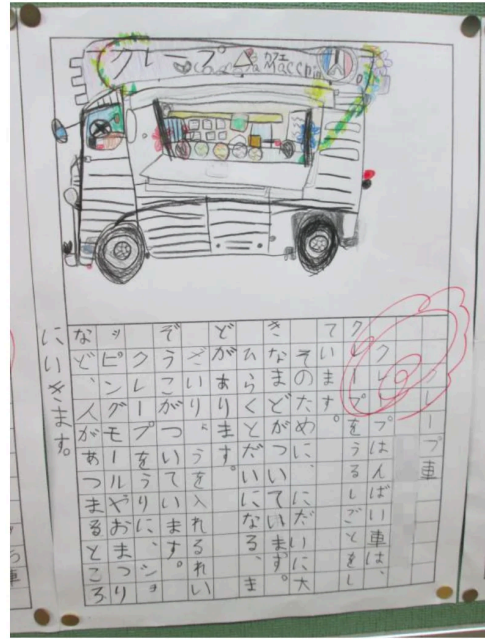 クレープ
クレープ車
クレープはんばい車は、
クレープをうるしごとをし
ています。
そのために、にだいに大
きなまどがついています。
ひらくとだいになる、ま
どがあります。
ざいりょうを入れるれい
ぞうこがついています。
クレープをうりに、ショ
ッピングモールやおまつり
など、人があつまるところ
にいきます。